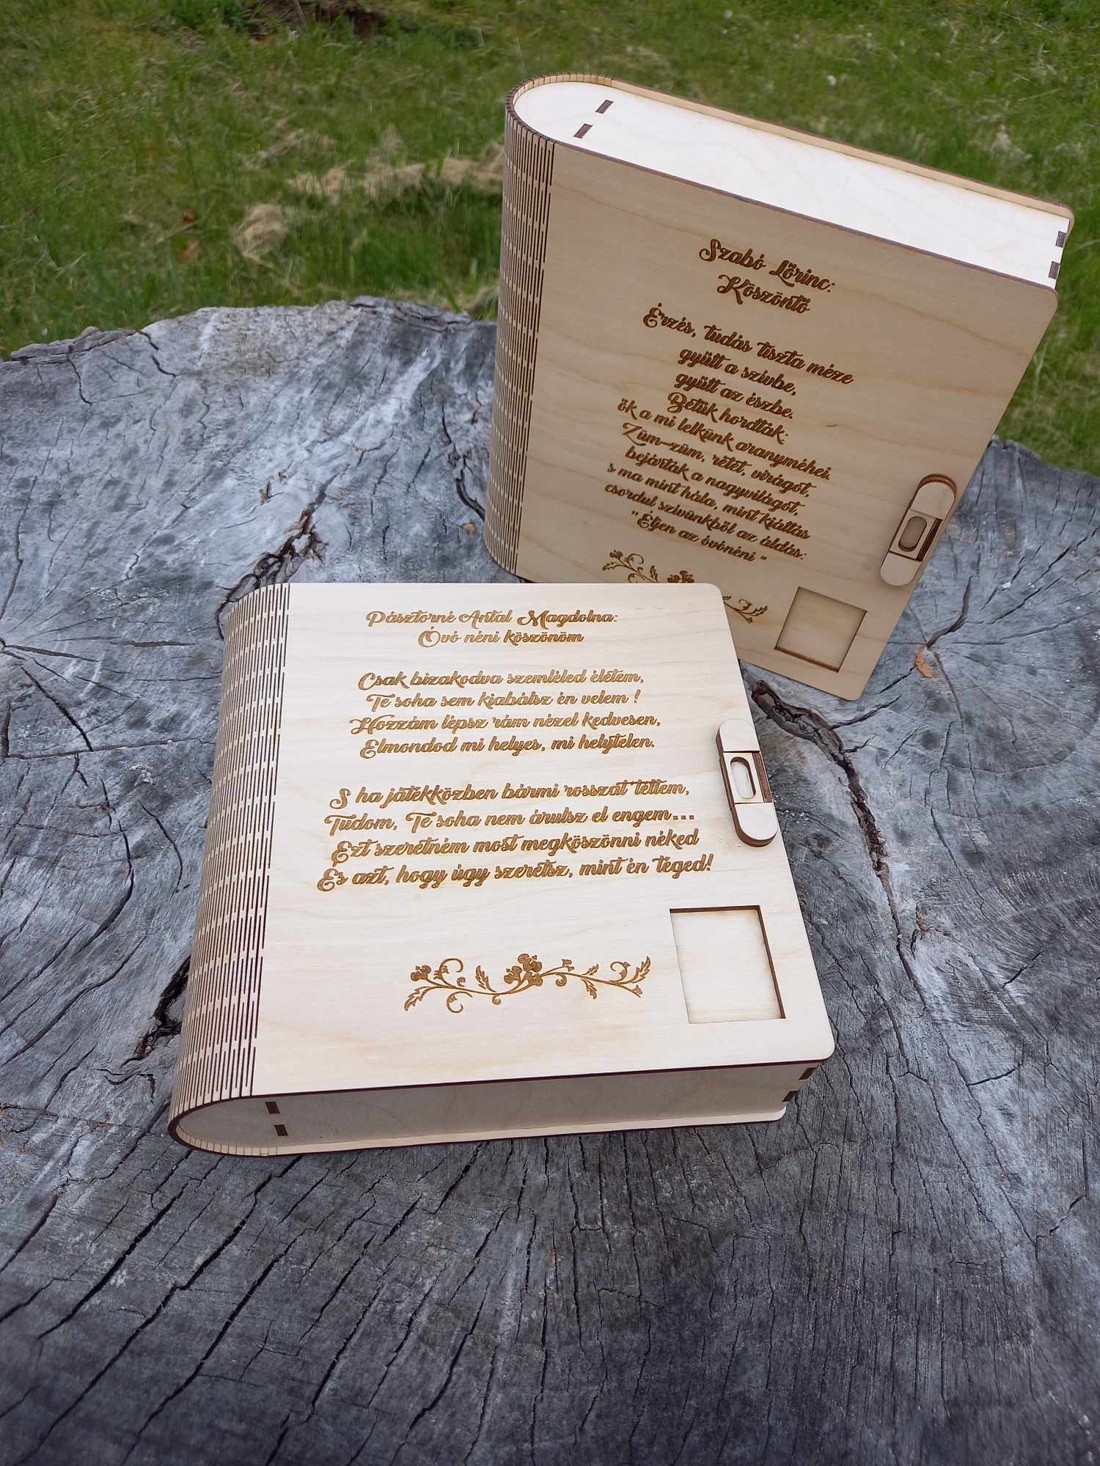 Szabó Lőrinc:
Köszöntő
Érzés, tudás tiszta méze
gyűlt a szívbe,
gyűlt az észbe.
Betűk hordták:
ők a mi lelkünk aranyméhei.
Züm-züm, rétet, virágot,
bejárták a nagyvilágot,
s ma mint hála, mint kiáltás
csordul szívünkből az áldás:
"Éljen az óvónéni"
Pásztorné Antal Magdolna:
Óvó néni köszönöm
Csak bizakodva szemléled életem,
Te soha sem kiabálsz én velem !
Hozzám lépsz rám nézel kedvesen,
Elmondod mi helyes, mi helytelen.
S ha játékközben bármi rosszat tettem,
Tudom, Te soha nem árulsz el engem...
Ezt szeretném most megköszönni néked
És azt, hogy úgy szeretsz, mint én téged!